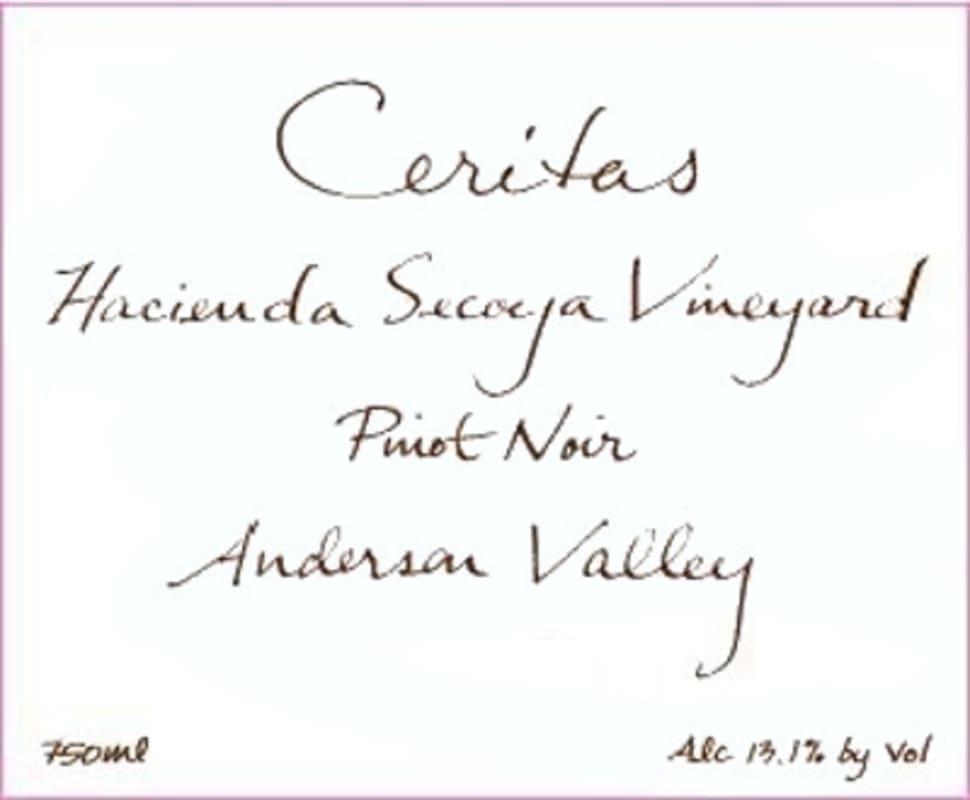 Ceritas
Hacienda Secoya Vineyard
Pinot Noir
Anderson Valley
750ml
Alc 13.1% by Vol